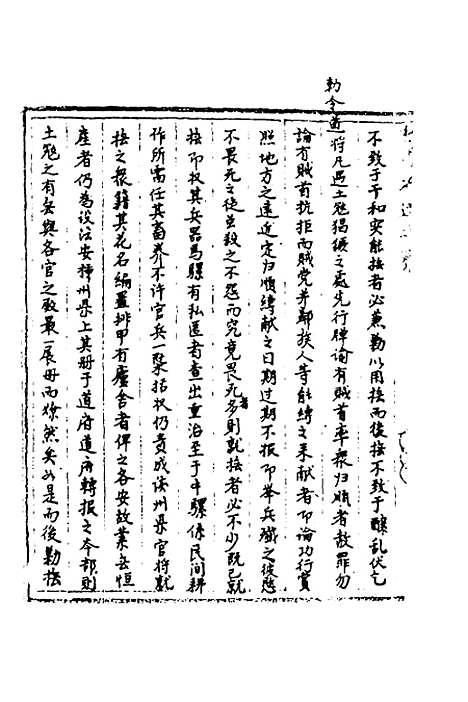 不致于干和实能抚者必兼勦以用抚而後抚不致于釀乱伏乞
勅令道将凡遇土冦猖獗之處先行牌諭有贼首率衆归顺者赦罪勿
論有贼首抗拒而贼党并鄰族人等能縛之来献者即論功行賞
照地方之遠近定归順縛献之日期过期不报即举兵殲之彼愍
不畏死之徒並殺之不怨而究竟畏死者多则就抚者必不少既已就
抚即收其兵器马騾有私匿者查出重治至于牛騾係民间耕
作所需任其畜养不许官兵一槩括收仍责成该州县官将就
抚之衆籍其花名编置排甲有廬舍者俾之各安故業無恒
産者仍為设法安插州县上其册于道府道府轉报之本部则
土冦之有無與各官之殿最一展册而燎然矣如是而後勦抚